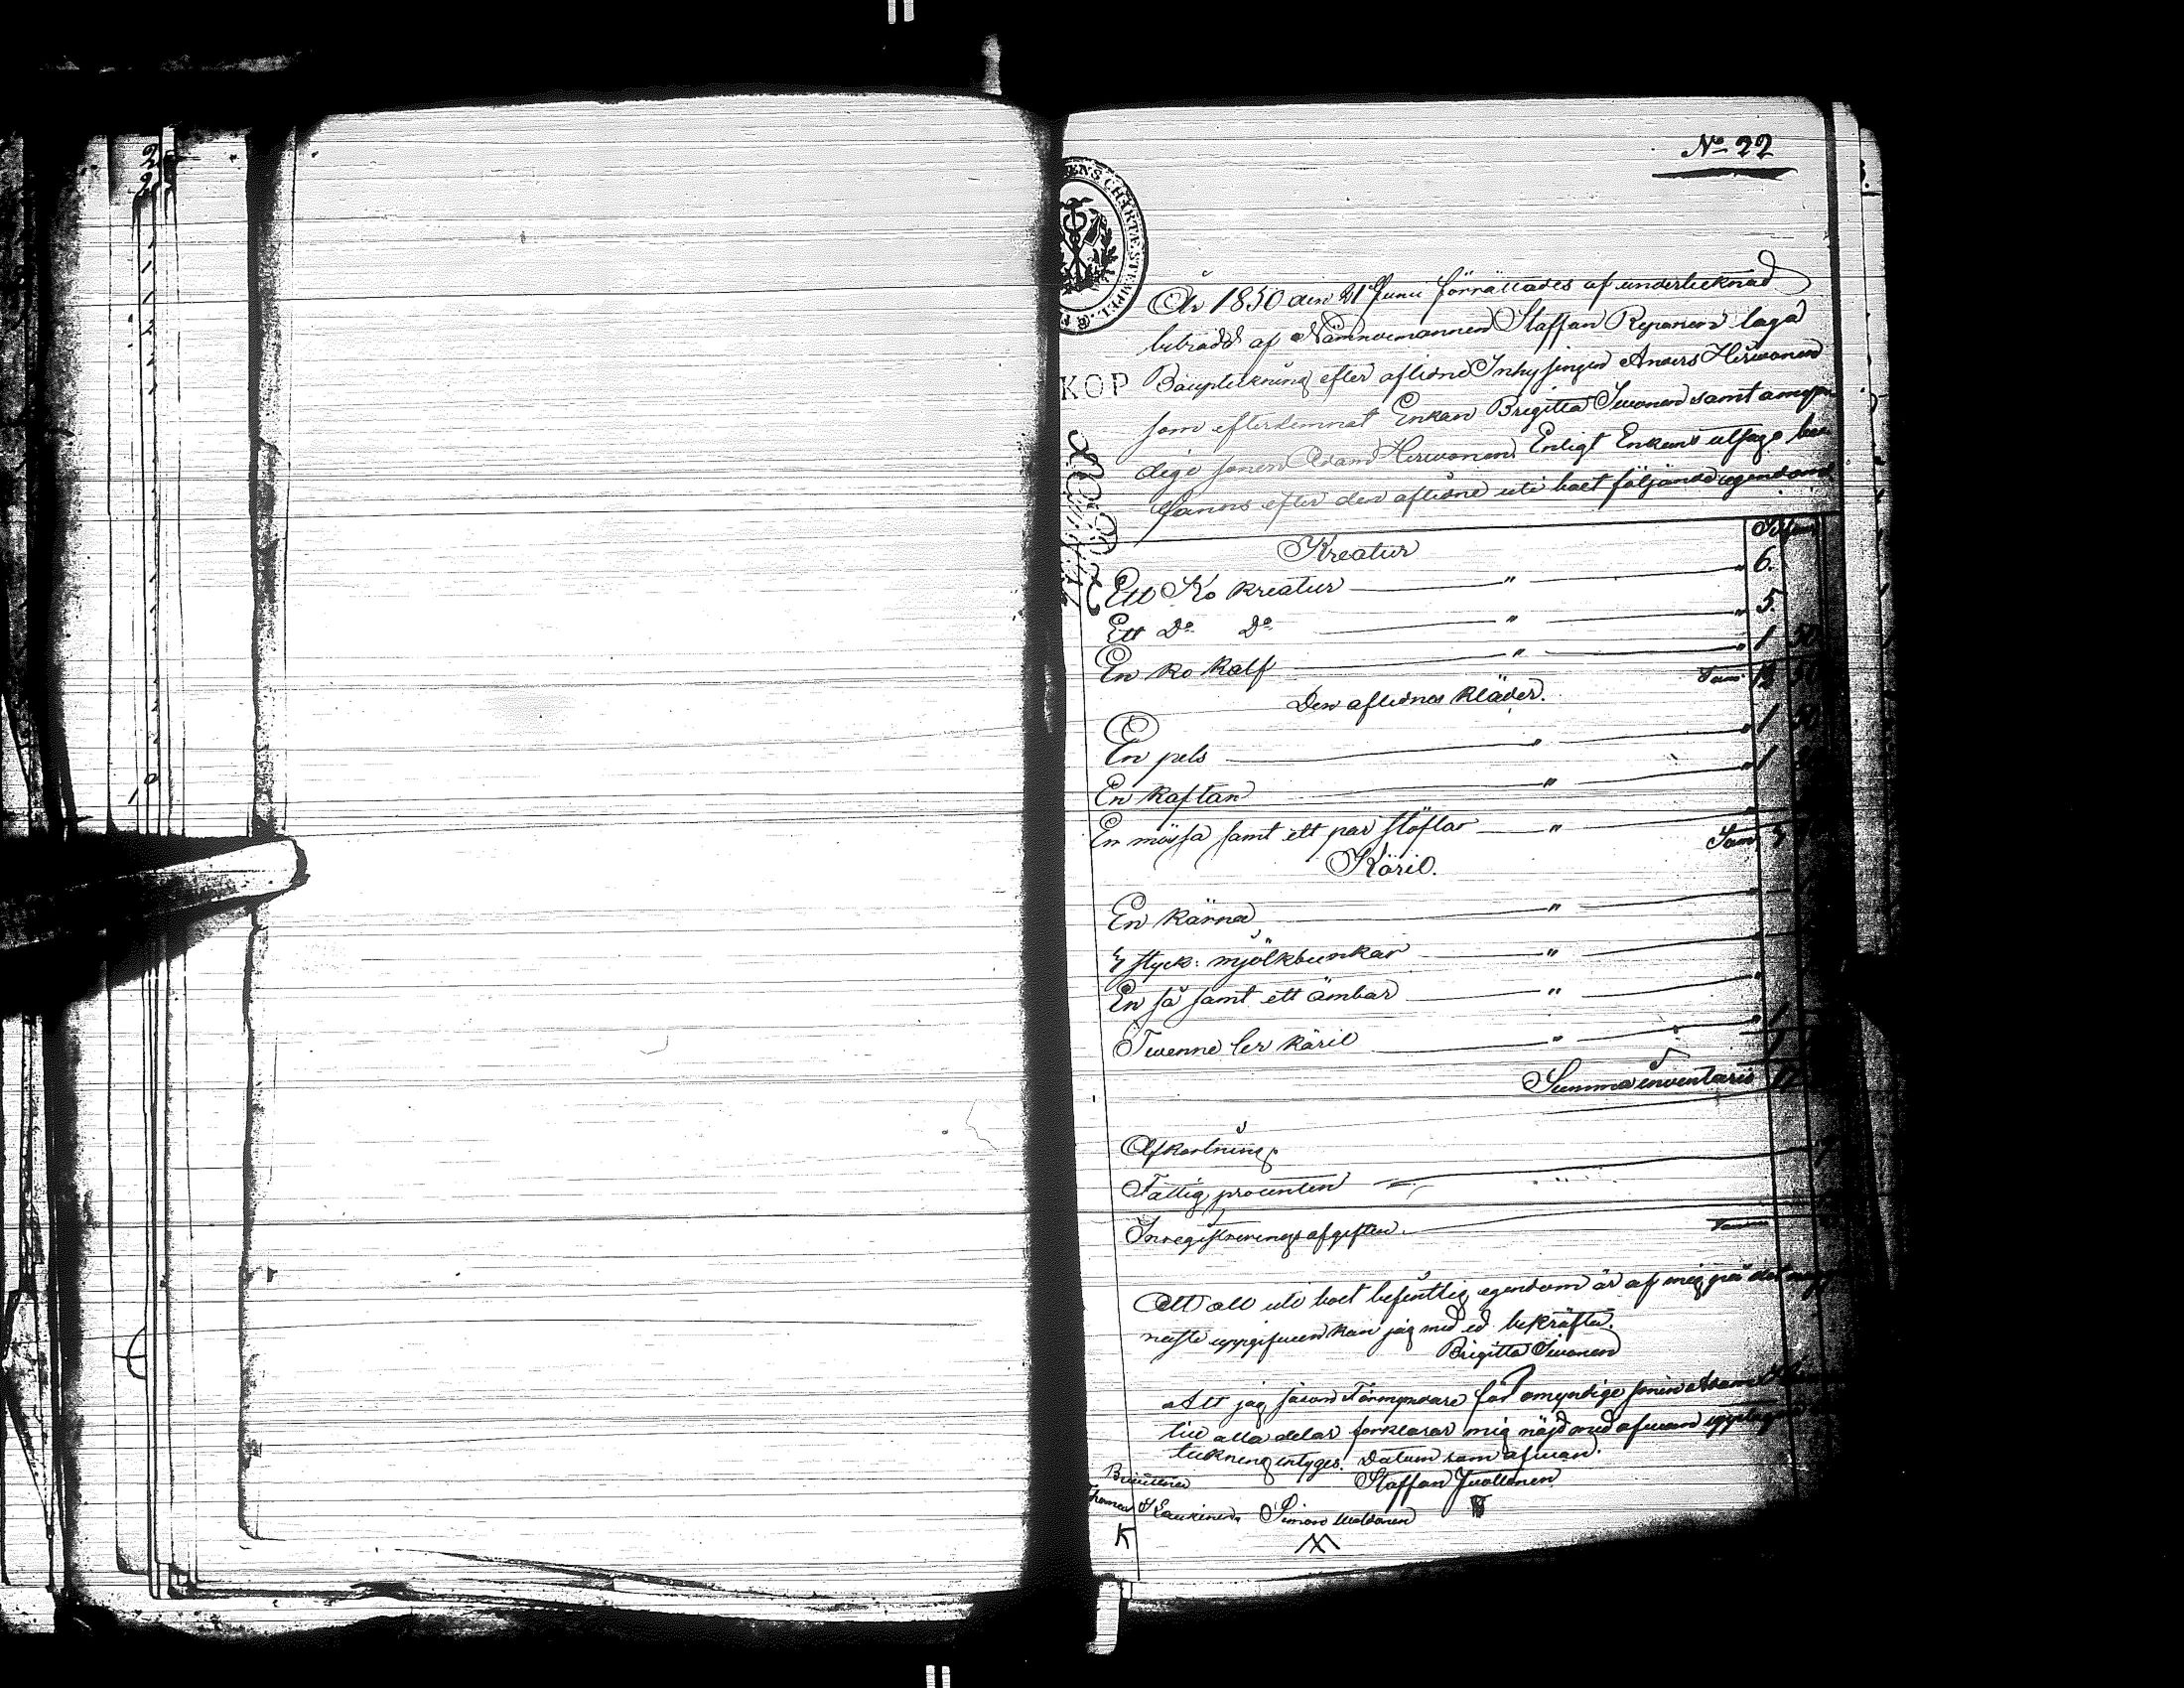 No 22
ENS CHARTE STEMPEL
KOP
År 1850 den 21 Junii förrättades af undertecknad
biträdd af Nämndemannen Staffan Reponen laga
Bouptekning efter aflidne Inhysingen Anders Hirvonen
som efterlemnat Enkan Brigitta Iwonen samt omyn
dige sonen Adam Hirvonen. Enligt Enkans utsago be
fanns efter den aflidne uti boet följande egendom
Kreatur
Ett Ko kreatur " " 6.
Ett Do Do " " 5.
En ko kalf " " 1 50
Sum 12 50
Den aflidnes kläder.
En pels " " 1 50
En kaftan " " 1
En mössa samt ett par stöflar " "
Sum 3
Käril.
En kärna " "
4 styck: mjölkbunkar " "
En så samt ett ämbar " "
Twenne ler käril " " 1
Summa inventarie 17
Afkortning.
Fattig procenten
Inregistreringsafgiften.
Att all uti boet befintlig egendom är af mig på det
naste uppgifven kan jag med ed bekräfta.
Brigitta Iwonen
Att jag såsom Förmyndare för omyndige sonen Adam
till alla delar förklarar mig nöjd med ofvan upptagne
tekning intyges. Datum som ofvan.
Staffan Juollonen
Thomas Laukinen. Simon
K